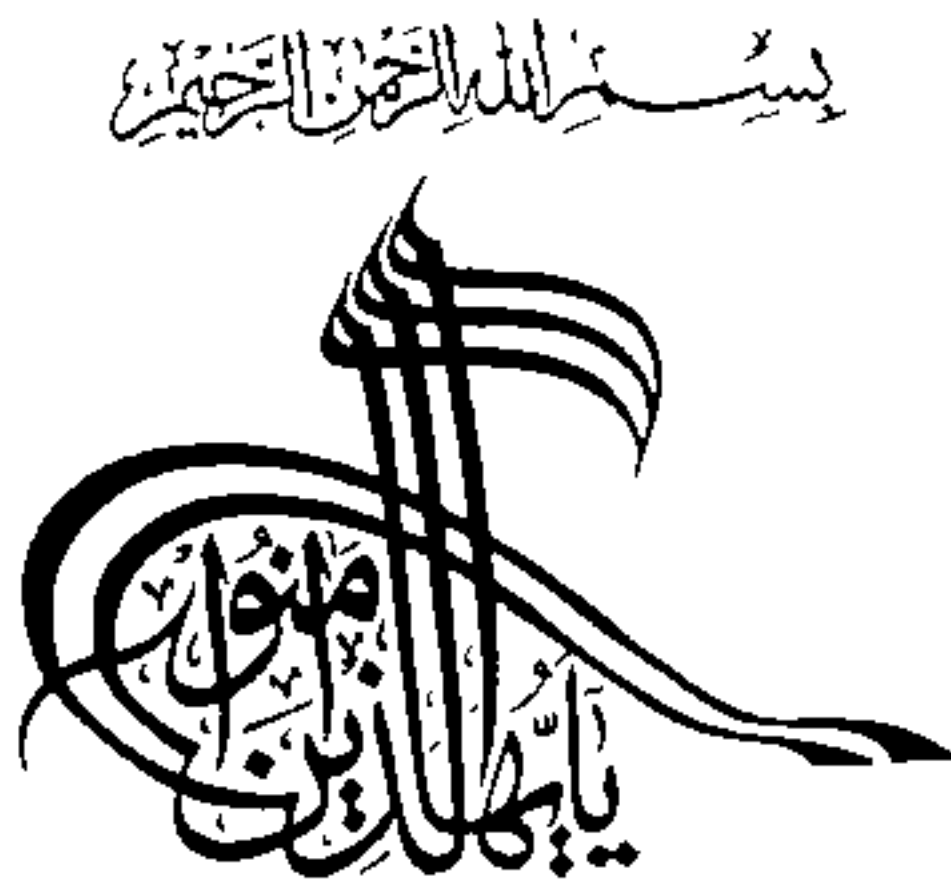 بِسْمِ اللهِ الرَّحْمٰنِ الرَّحِيْمِ
يٰۤاَيُّهَا الَّذِيْنَ اٰمَنُوْا